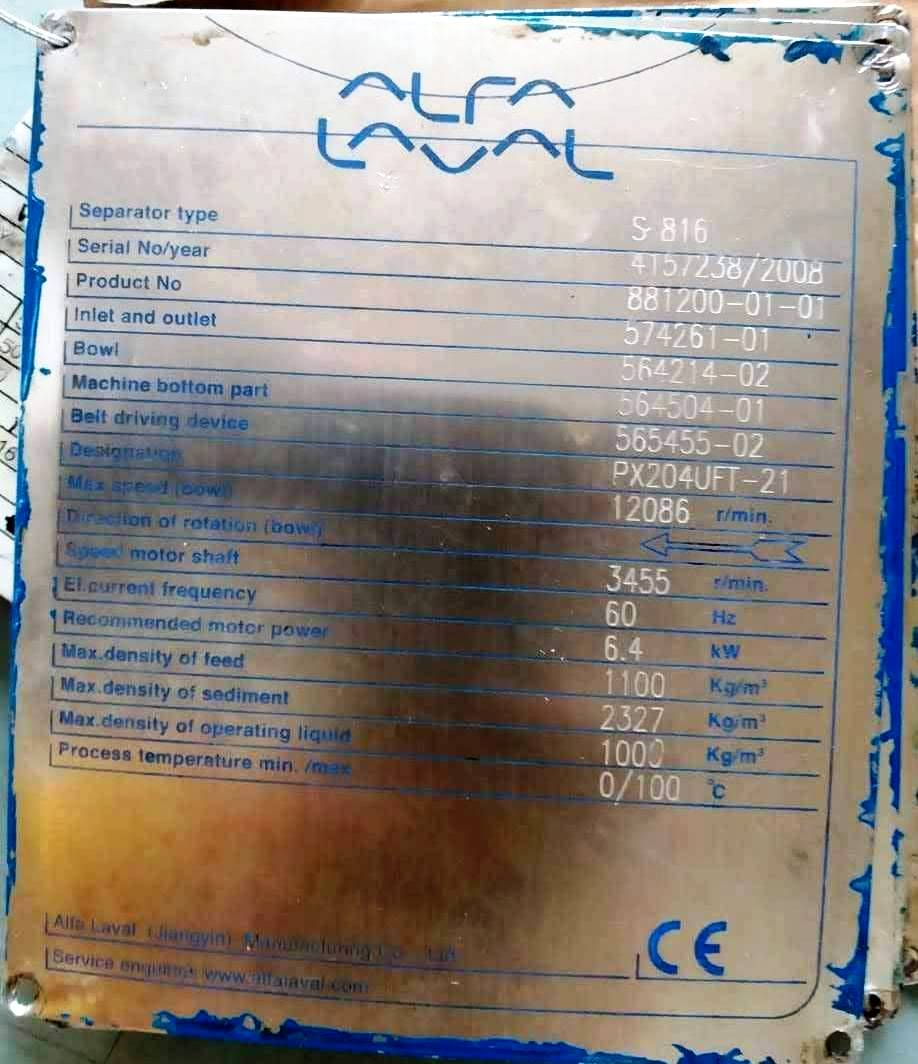 ALFA
LAVAL
Separator type S 816
Serial No/year 4157238/2008
Product No 881200-01-01
Inlet and outlet 574261-01
Bowl 564214-02
Machine bottom part 564504-01
Belt driving device 565455-02
Designation PX204UFT-21
Max speed (bowl) 12086 r/min.
Direction of rotation (bowl)
Speed motor shaft 3455 r/min.
El.current frequency 60 Hz
Recommended motor power 6.4 kW
Max.density of feed 1100 Kg/m³
Max.density of sediment 2327 Kg/m³
Max.density of operating liquid 1000 Kg/m³
Process temperature min. /max 0/100 °C
Alfa Laval (Jiangyin) Manufacturing Co., Ltd.
Service enquiries www.alfalaval.com
CE